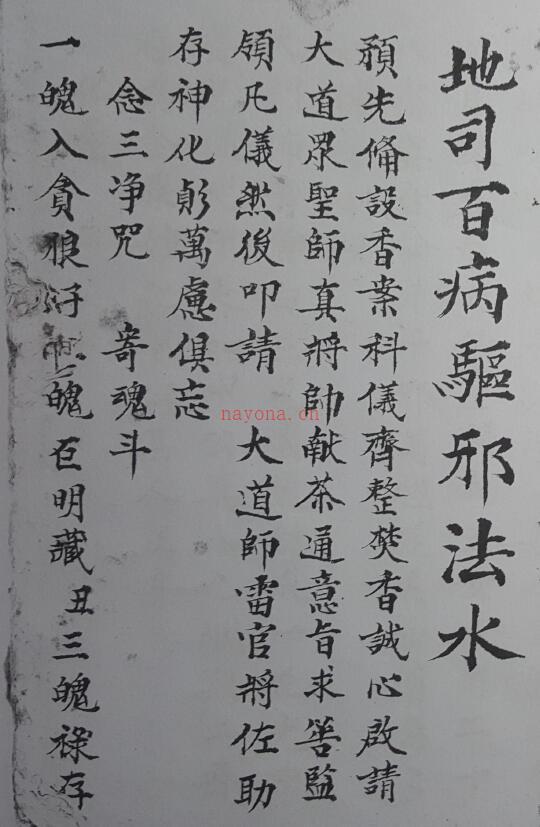 地司百病驅邪法水
預先俻設香案科儀齊整焚香誠心啟請
大道眾聖師真將帥献茶通意旨求筭監
領凡儀然後叩請 大道師雷官將佐助
存神化身萬慮俱忘
念三净咒 寄魂斗
一魄入貪狼 魄巨明藏 丑三魄祿存
nayona.cn